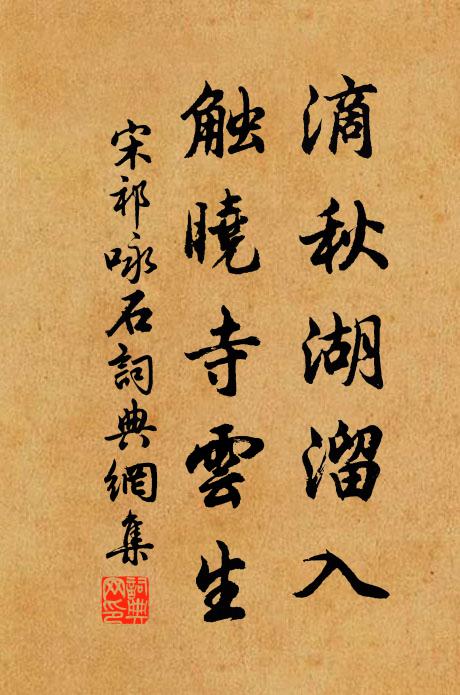 滴秋湖溜入
触曉寺雲生
宋祁咏石詞典網集
詞典網印